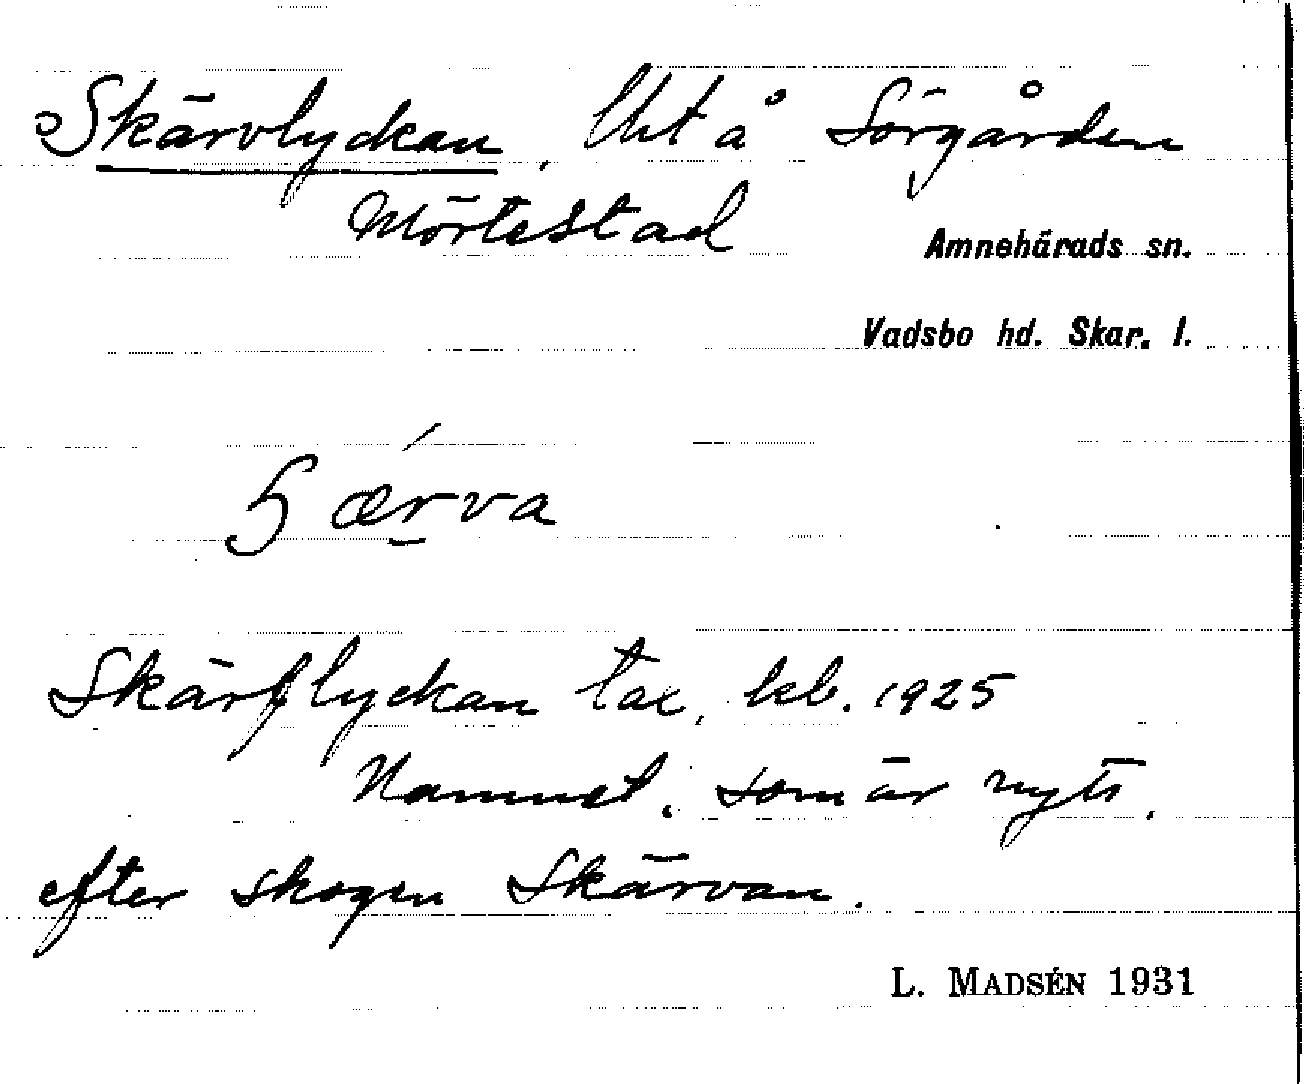 Skärvlyckan, lht å Sörgården
Mörtestad
Amnehärads sn.
Vadsbo hd. Skar. l.
ɧærva
Skärflyckan tax. lkb. 1925
Namnet, som är nytt,
efter skogen Skärvan.
L. MADSÉN 1931